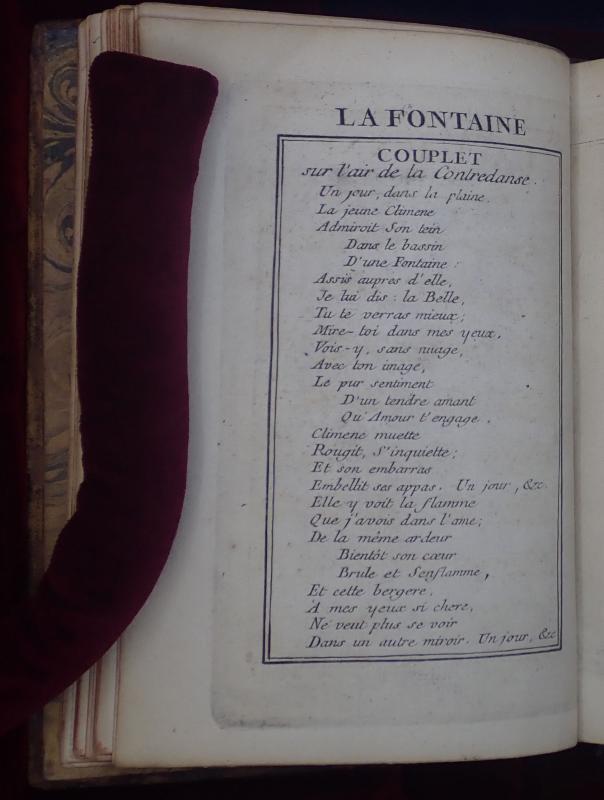 LA FONTAINE
COUPLET
sur l'air de la Contredanse.
Un jour, dans la plaine.
La jeune Climene
Admiroit Son tein
Dans le bassin
D'une Fontaine :
Assis auprès d'elle,
Je lui dis : la Belle,
Tu te verras mieux;
Mire-toi dans mes yeux.
Vois-y, sans nuage,
Avec ton image,
Le pur sentiment
D'un tendre amant
Qu'Amour t'engage.
Climene muette
Rougit, S'inquiette;
Et son embarras
Embellit ses appas. Un jour, &c.
Elle y voit la flamme
Que j'avois dans l'ame;
De la même ardeur
Bientôt son cœur
Brule et Senflamme,
Et cette bergere,
A mes yeux si chere,
Ne veut plus se voir
Dans un autre miroir. Un jour, &c